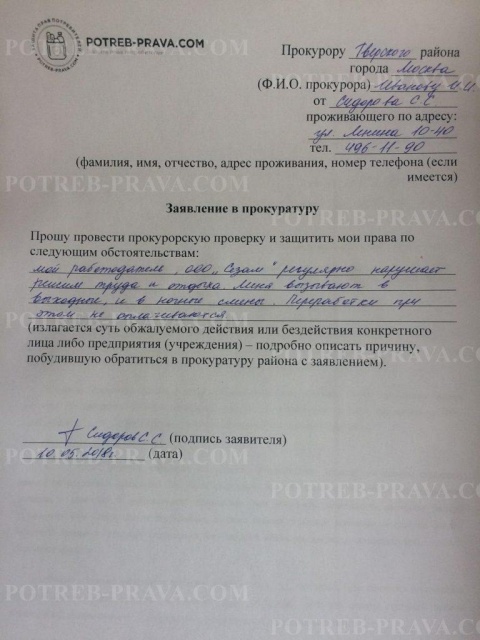 POTREB-PRAVA.COM
Прокурору Тверского района
города Москва
(Ф.И.О. прокурора) Иванову И.И.
от Сидорова С.С
проживающего по адресу:
ул Ленина 10-40
тел. 496-11-90
(фамилия, имя, отчество, адрес проживания, номер телефона (если
имеется)
POTREB-PRAVA.COM
POTREB-PRAVA.COM
Заявление в прокуратуру
Прошу провести прокурорскую проверку и защитить мои права по
следующим обстоятельствам:
мой работодатель, ООО „Сезам" регулярно нарушает
режим труда и отдыха. Меня вызывают в
выходной, и в ночные смены. Переработки при
этом не оплачиваются
(излагается суть обжалуемого действия или бездействия конкретного
лица либо предприятия (учреждения) – подробно описать причину,
побудившую обратиться в прокуратуру района с заявлением).
Сидоров С.С (подпись заявителя)
10.05.2018г (дата)
POTREB-PRAVA.COM
POTREB-PRAVA.COM
POTREB-PRAVA.COM
POTREB-PRAVA.COM